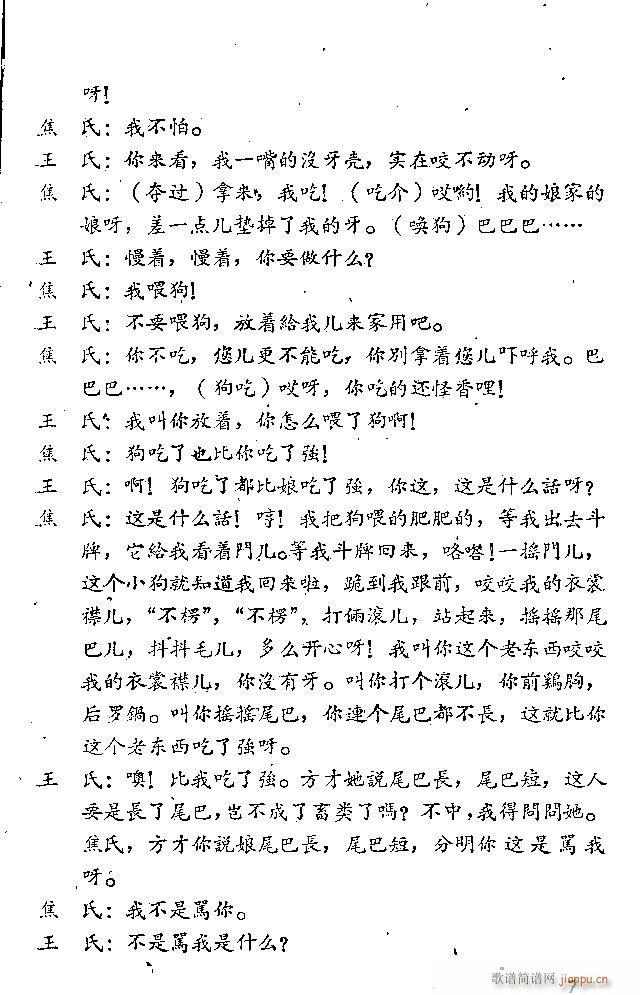 呀！
焦　氏：我不怕。
王　氏：你来看，我一嘴的沒牙壳，实在咬不动呀。
焦　氏：（夺过）拿来，我吃！（吃介）哎喲！我的娘家的
娘呀，差一点儿垫掉了我的牙。（唤狗）巴巴巴……
王　氏：慢着，慢着，你要做什么？
焦　氏：我喂狗！
王　氏：不要喂狗，放着給我儿来家用吧。
焦　氏：你不吃，您儿更不能吃，你別拿着您儿吓呼我。巴
巴巴……，（狗吃）哎呀，你吃的还怪香哩！
王　氏：我叫你放着，你怎么喂了狗啊！
焦　氏：狗吃了也比你吃了強！
王　氏：啊！狗吃了都比娘吃了強，你这，这是什么話呀？
焦　氏：这是什么話！哼！我把狗喂的肥肥的，等我出去斗
牌，它給我看着門儿。等我斗牌回来，咯噔！一摇門儿，
这个小狗就知道我回来啦，跪到我跟前，咬咬我的衣裳
襟儿，“不楞”，“不楞”，打俩滚儿，站起来，摇摇那尾
巴儿，抖抖毛儿，多么开心呀！我叫你这个老东西咬咬
我的衣裳襟儿，你沒有牙。叫你打个滾儿，你前鷄胸，
后罗鍋。叫你摇摇尾巴，你連个尾巴都不長，这就比你
这个老东西吃了強呀。
王　氏：噢！比我吃了強。方才她說尾巴長，尾巴短，这人
要是長了尾巴，岂不成了畜类了嗎？不中，我得問問她。
焦氏，方才你說娘尾巴長，尾巴短，分明你这是駡我
呀。
焦　氏：我不是駡你。
王　氏：不是駡我是什么？
7
歌谱简谱网 jianpu.cn